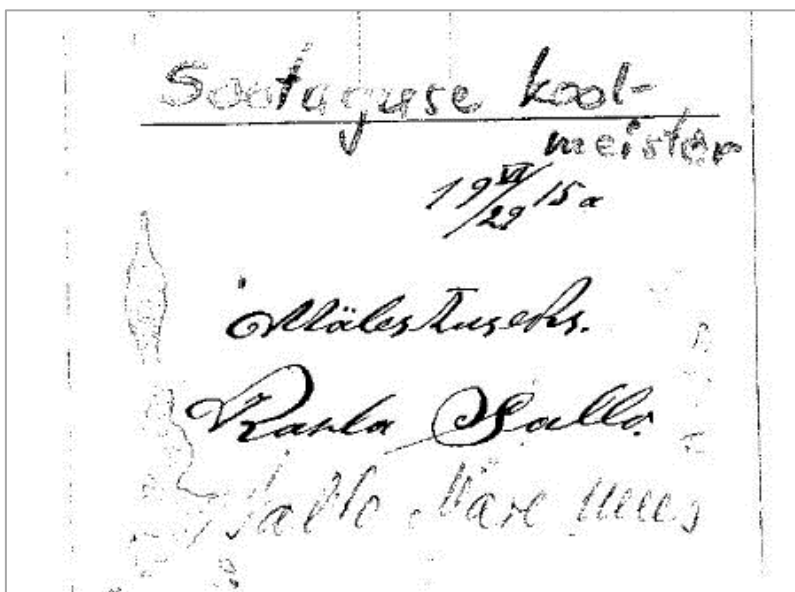 Sootaguse kool-
meister
19 VI/29 15 a
Mälestuseks.
Karla Sallo.
Sallo